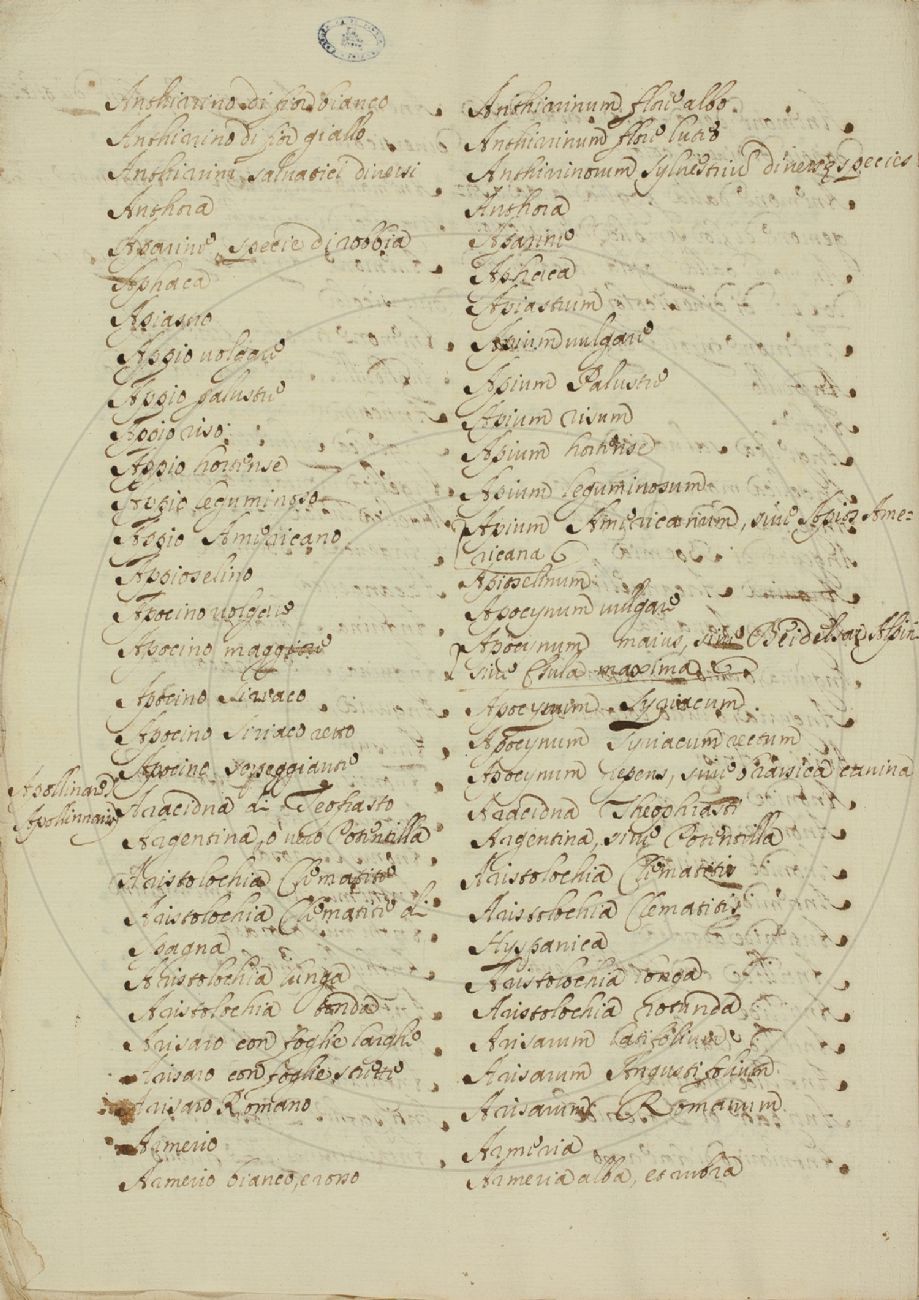 Anthirrino di fior bianco
Anthirrino di fior giallo
Anthirrini salvatici diversi
Anthora
Aparine specie di robbia
Aphaca
Apiastro
Appio volgare
Appio palustre
Appio riso
Appio hortense
Appio leguminoso
Appio Americano
Appioselino
Apocino volgare
Apocino maggiore
Apocino Siriaco
Apocino Siriaco retto
Apocino serpeggiante
Apollinare
Apollinaris
Aracidna di Teofrasto
Argentina, o vero Potentilla
Aristolochia Clematite
Aristolochia Clematite di
Spagna
Aristolochia lunga
Aristolochia tonda
Arisaro con foglie larghe
Arisaro con foglie strette
Arisaro Romano
Armerio
Armerio bianco, e rosso
Anthirrinum flore albo
Anthirrinum flore luteo
Anthirrinorum sylvestrium diversę species
Anthora
Aparine
Aphaca
Apiastrum
Apium vulgare
Apium Palustre
Apium risum
Apium hortense
Apium leguminosum
Apium Americanum, sive Apios Ame=
ricana
Apioselinum
Apocynum vulgare
Apocynum maius, sive Beidelsar Alpini
sive Esula maxima
Apocynum Syriacum
Apocynum Syriacum rectum
Apocynum repens, sive brassica canina
Aracidna Theophrasti
Argentina, sive Potentilla
Aristolochia Clematitis
Aristolochia Clematitis
Hyspanica
Aristolochia longa
Aristolochia rotunda
Arisarum latifolium
Arisarum Angustifolium
Arisarum Romanum
Armeria
Armeria alba, et rubra